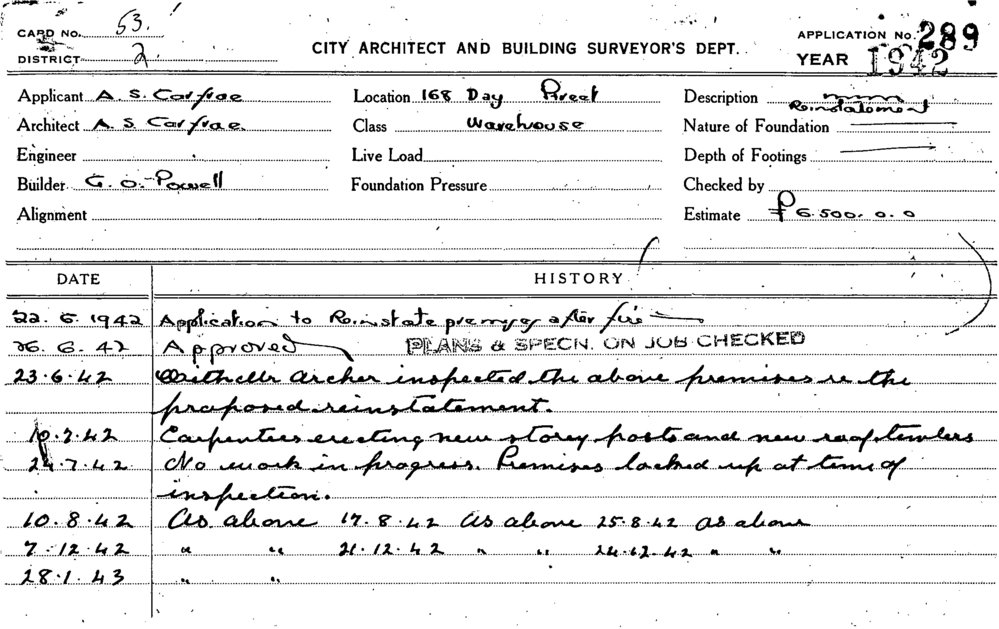 CARD No. 53.
DISTRICT 2.
CITY ARCHITECT AND BUILDING SURVEYOR'S DEPT.
APPLICATION No. 289
YEAR 1942
Applicant A. S. Carfrae Location 168 Day Street Description Reinstatement
Architect A. S. Carfrae. Class Warehouse Nature of Foundation
Engineer Live Load Depth of Footings
Builder G. O. Powell Foundation Pressure Checked by
Alignment Estimate £6.500.0.0
DATE HISTORY
22.6.1942 Application to Reinstate premises after fire
26.6.42 Approved PLANS & SPECN. ON JOB CHECKED
23.6.42 With Mr Archer inspected the above premises re the
proposed reinstatement.
10.7.42 Carpenters erecting new storey posts and new roof timbers
24.7.42 No work in progress. Premises locked up at time of
inspection.
10.8.42 As above 17.8.42 As above 25.8.42 As above
7.12.42 " " 21.12.42 " " 24.12.42 " "
28.1.43 " "